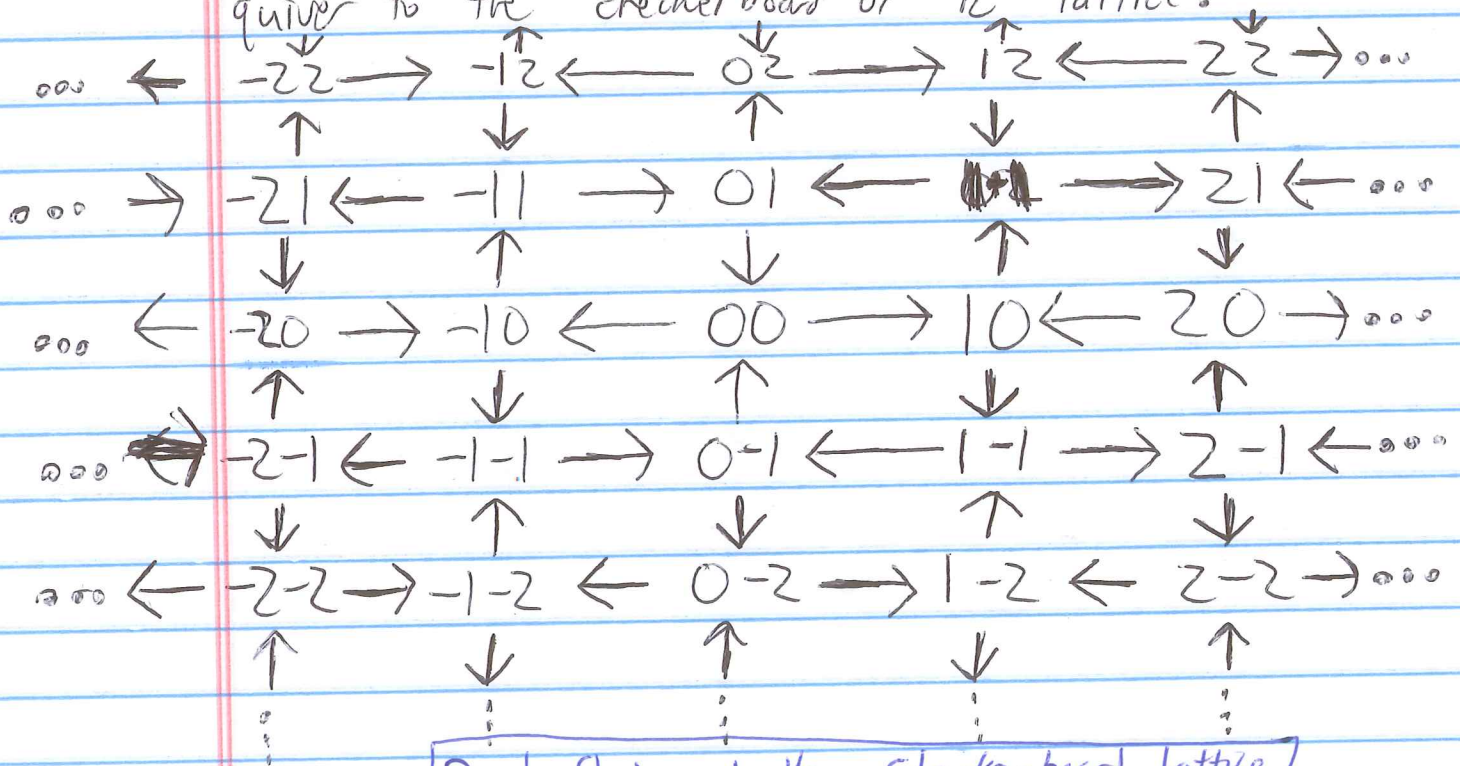 quiver to the checkerboard of Z² lattice.
... ← -22 → -12 ← 02 → 12 ← 22 → ...
... → -21 ← -11 → 01 ← → 21 ← ...
... ← -20 → -10 ← 00 → 10 ← 20 → ...
... → -2-1 ← -1-1 → 0-1 ← 1-1 → 2-1 ← ...
... ← -2-2 → -1-2 ← 0-2 → 1-2 ← 2-2 → ...
lattice